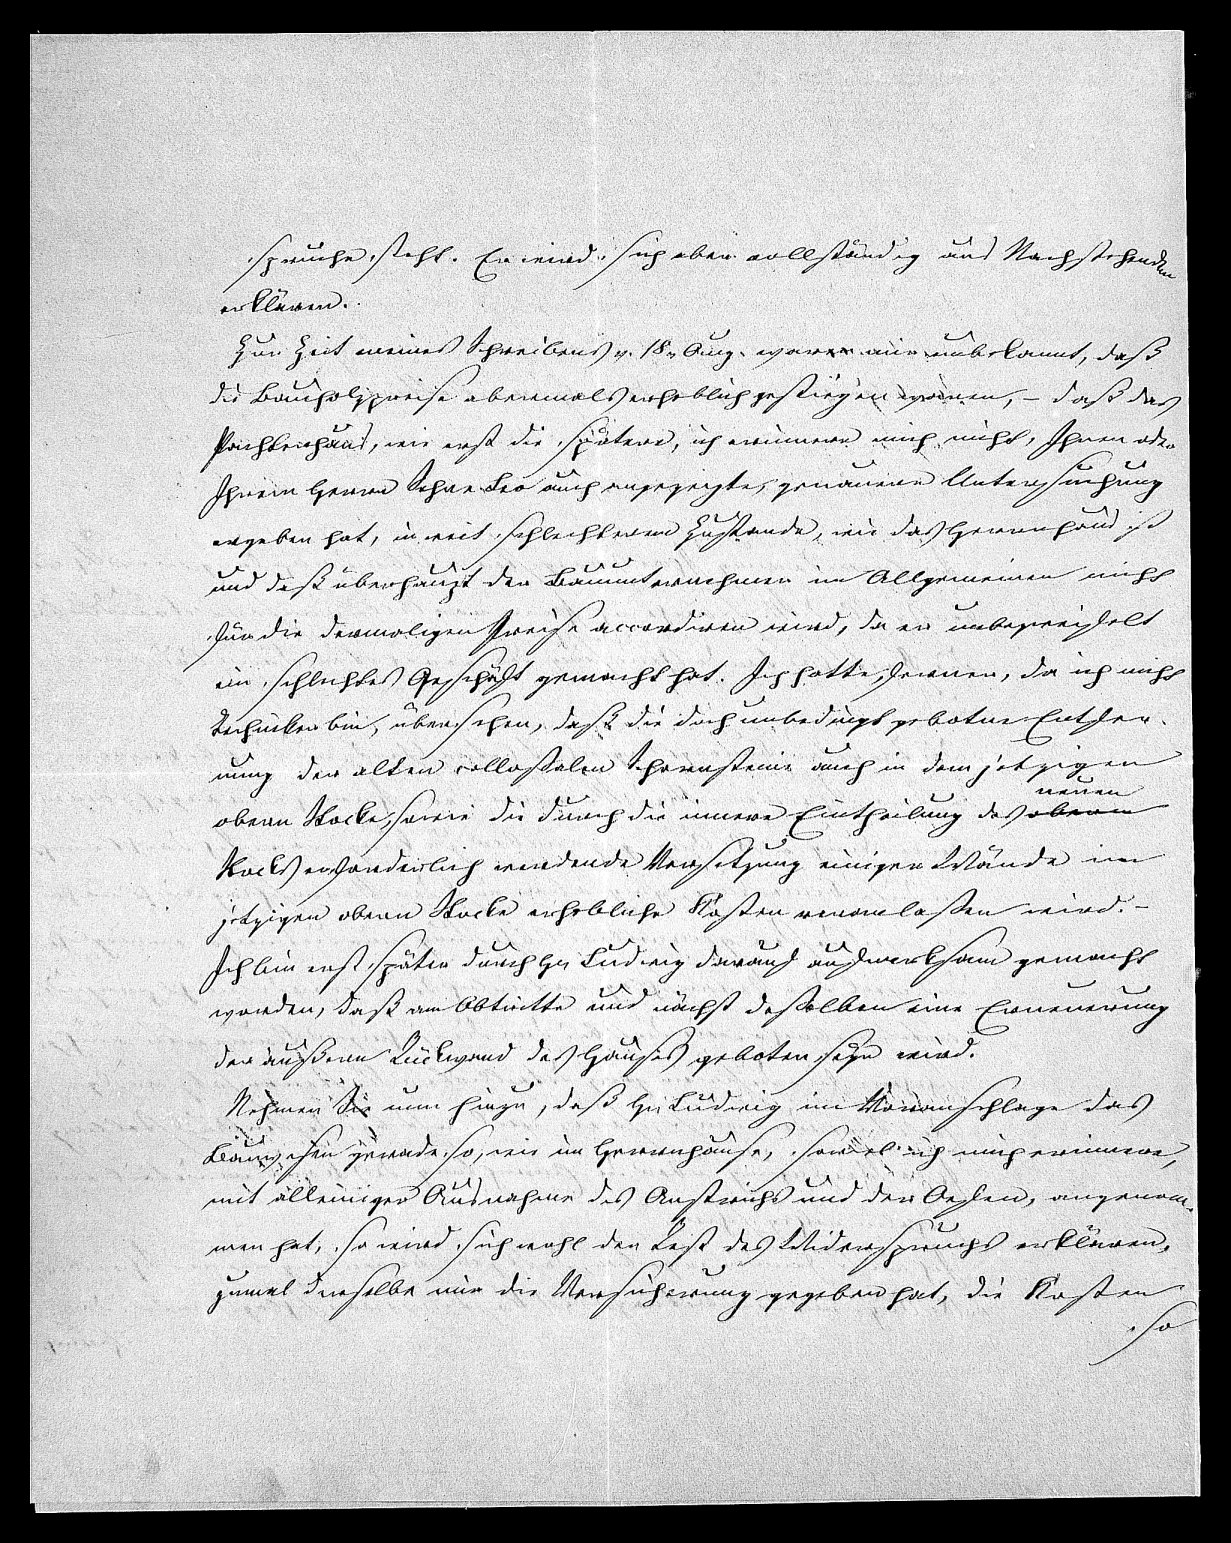 spruche steht. Er wird sich aber vollständig aus Nachstehendem
erklären.
Zur Zeit meines Schreibens v. 18. Aug. war mir unbekannt, daß
die Bauholzpreise abermals erheblich gestiegen waren, – daß das
Pachterhaus, wie erst die spätere, ich erinnere mich nicht, Ihnen oder
Ihrem Herrn auch angezeigte, genauere Untersuchung
ergeben hat, in weit schlechterem Zustande, wie das Herrenhaus ist
und daß überhaupt der Bauunternehmer im Allgemeinen nicht
für die dermaligen Preise accordiren wird, da er unbezweifelt
ein schlechtes Geschäft gemacht hat. Ich hatte, ferner, da ich nicht
Techniker bin, übersehen, daß die doch unbedingt gebotne Entfer-
nung der alten collossalen Schornsteine auch in dem jetzigen
obern Stocke, sowie die durch die innere Eintheilung des obern neuen
Stocks erforderlich werdende Versetzung einiger Wände im
jetzigen obern Stocke erhebliche Kosten veranlaßen wird. –
Ich bin erst später durch Hr. Ludwig darauf aufmerksam gemacht
worden, daß am Abtritte und nächst deßelben eine Erneuerung
der äußern Rückwand des Hauses geboten seyn wird.
Nehmen Sie nun hinzu, daß Hr. Ludwig im Voranschlage das
Bauwesen gerade so, wie im Herrenhause, soviel ich mich erinnere,
mit alleiniger Ausnahme des Anstrichs und der Oefen, angenom-
men hat, so wird sich wohl der Rest des Widerspruchs erklären,
zumal derselbe mir die Versicherung gegeben hat, die Kosten
so